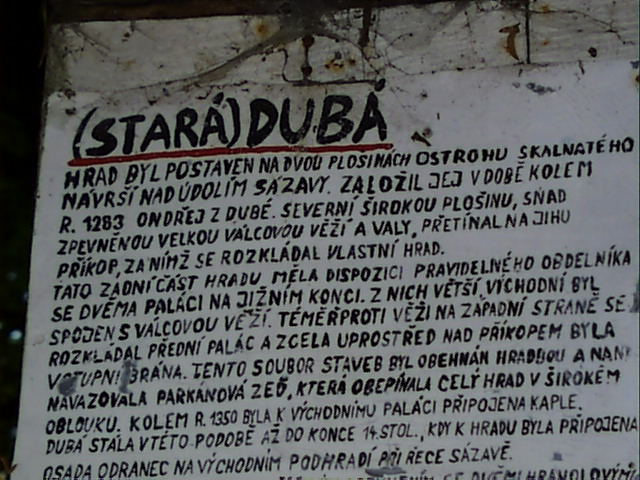 (STARÁ) DUBÁ
HRAD BYL POSTAVEN NA DVOU PLOŠINÁCH OSTROHU SKALNATÉHO
NÁVRŠÍ NAD ÚDOLÍM SÁZAVY. ZALOŽIL JEJ V DOBĚ KOLEM
R. 1283 ONDŘEJ Z DUBÉ. SEVERNÍ ŠIROKOU PLOŠINU, SNAD
ZPEVNĚNOU VELKOU VÁLCOVOU VĚŽÍ A VALY, PŘETÍNAL NA JIHU
PŘÍKOP, ZA NÍMŽ SE ROZKLÁDAL VLASTNÍ HRAD.
TATO ZADNÍ ČÁST HRADU MĚLA DISPOZICI PRAVIDELNÉHO OBDELNÍKA
SE DVĚMA PALÁCI NA JIŽNÍM KONCI. Z NICH VĚTŠÍ, VÝCHODNÍ BYL
SPOJEN S VÁLCOVOU VĚŽÍ. TÉMĚŘ PROTI VĚŽI NA ZÁPADNÍ STRANĚ SE
ROZKLÁDAL PŘEDNÍ PALÁC A ZCELA UPROSTŘED NAD PŘÍKOPEM BYLA
VSTUPNÍ BRÁNA. TENTO SOUBOR STAVEB BYL OBEHNÁN HRADBOU A NANI
NAVAZOVALA PARKÁNOVÁ ZEĎ, KTERÁ OBEPÍNALA CELÝ HRAD V ŠIROKÉM
OBLOUKU. KOLEM R. 1350 BYLA K VÝCHODNÍMU PALÁCI PŘIPOJENA KAPLE.
DUBÁ STÁLA V TÉTO PODOBĚ AŽ DO KONCE 14. STOL., KDY K HRADU BYLA PŘIPOJENA
OSADA ODRANEC NA VÝCHODNÍM PODHRADÍ PŘI ŘECE SÁZAVĚ.
SE DVĚMI HRANOLOVÝMI